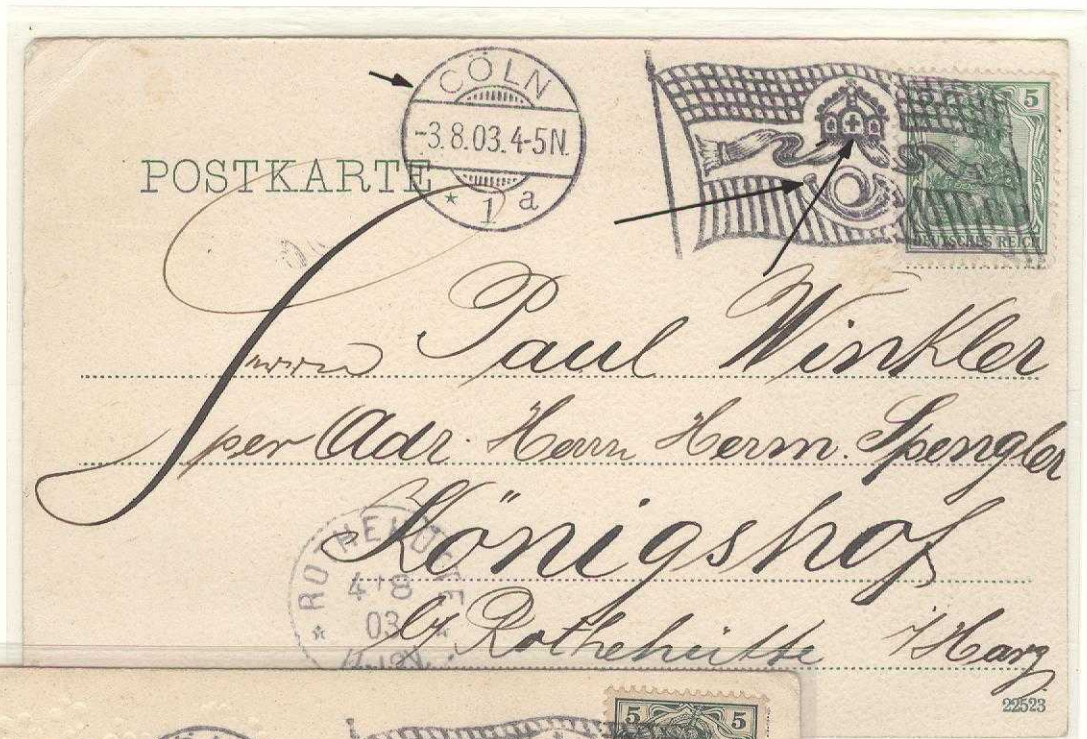 CÖLN
-3.8.03.4-5N.
* 1 a
5
DEUTSCHES REICH
POSTKARTE
Herrn Paul Winkler
per Adr. Herrn Herm. Spengler
Königshof
b/ Rothehütte i/Harz
ROTHEHÜTTE
4 8
03
22523
5 5